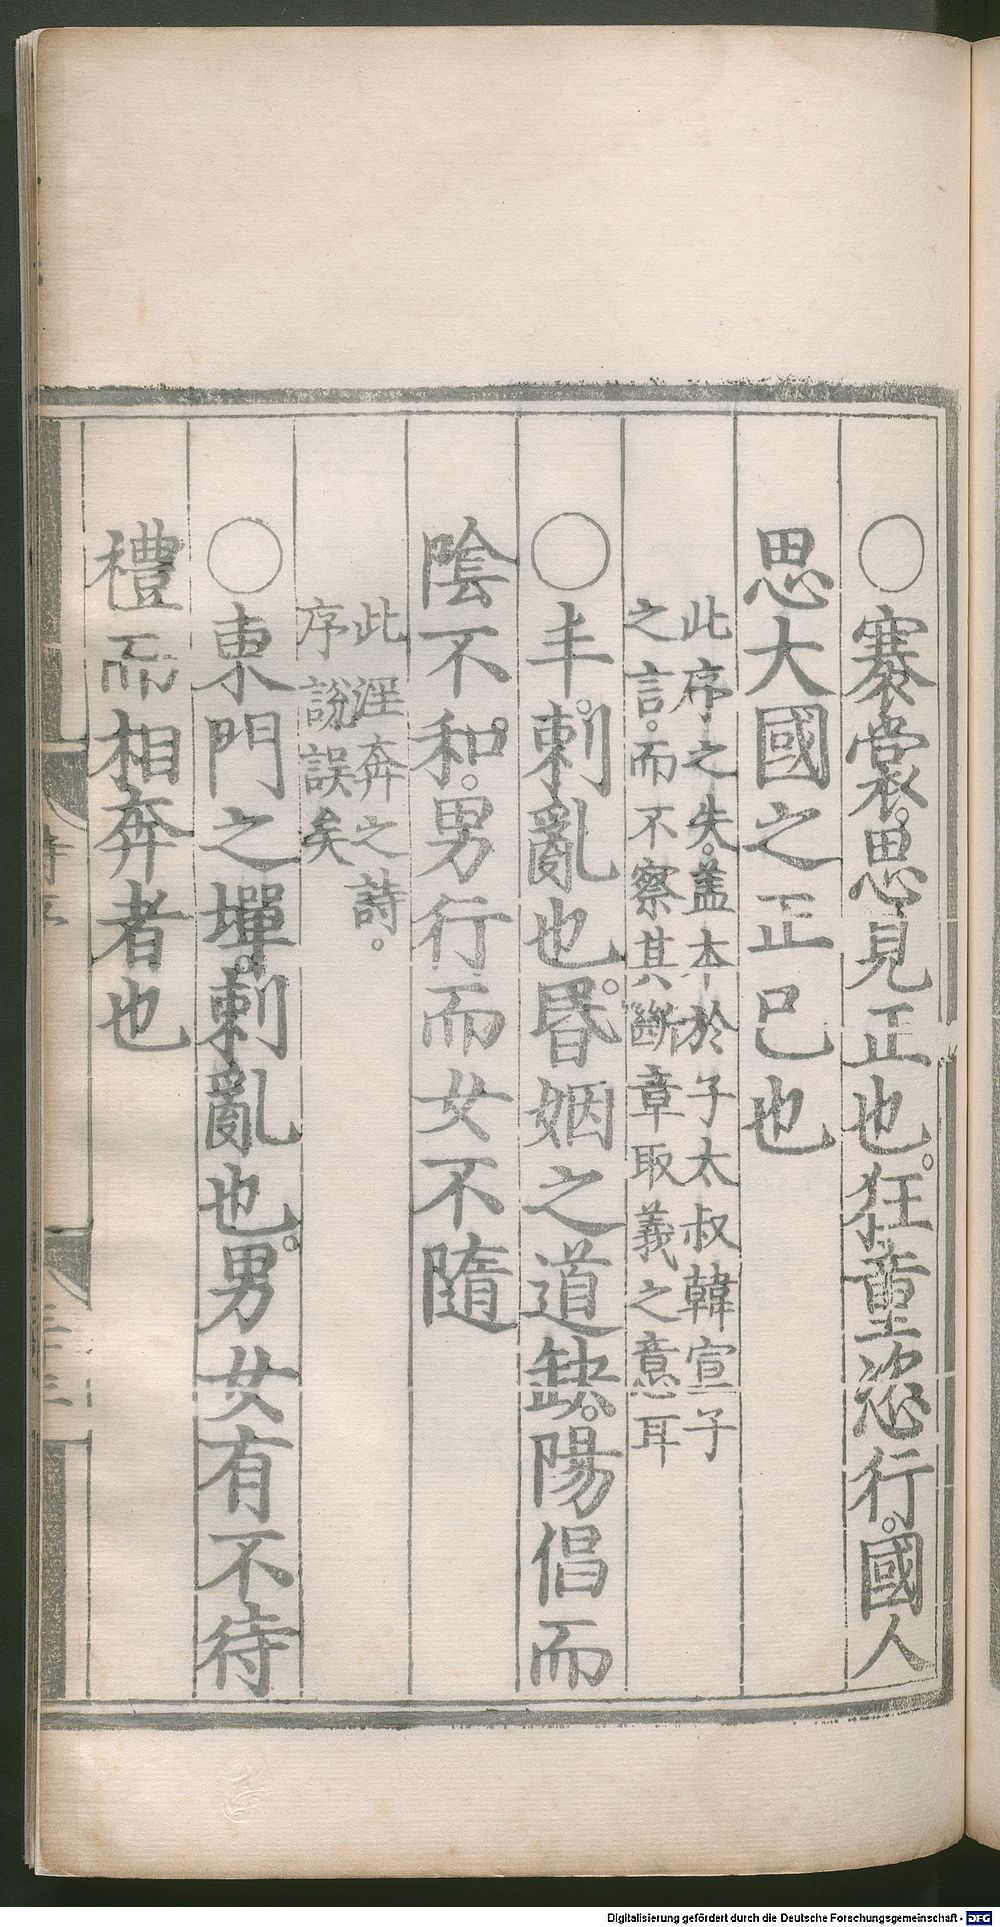 ○褰裳。思見正也。狂童恣行。國人
思大國之正已也
此序之失。盖本於子太叔韓宣子
之言。而不察其斷章取義之意耳
○丰。刺亂也。昬姻之道缺。陽倡而
陰不和。男行而女不隨
此淫奔之詩。
序說誤矣
○東門之墠。刺亂也。男女有不待
禮而相奔者也
Digitalisierung gefördert durch die Deutsche Forschungsgemeinschaft - DFG